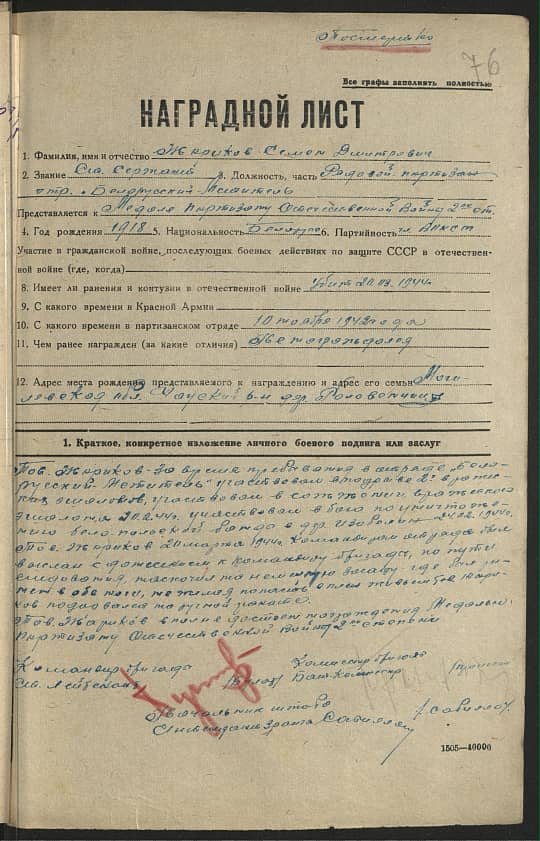 Посмертно
76
Все графы заполнять полностью
НАГРАДНОЙ ЛИСТ
1. Фамилия, имя и отчество Жариков Семен Дмитрович
2. Звание Ст. Сержант 3. Должность, часть Рядовой партизан
отр. „Белорусский Мститель
Представляется к Медале Партизану Отечественной Войны 2ой ст.
4. Год рождения 1918 5. Национальность Белорус 6. Партийность чл. ВЛКСМ
Участие в гражданской войне, последующих боевых действиях по защите СССР в отечествен-
ной войне (где, когда)
8. Имеет ли ранения и контузии в отечественной войне Убит 20.03.1944г.
9. С какого времени в Красной Армии
10. С какого времени в партизанском отряде 10 ноября 1942 года
11. Чем ранее награжден (за какие отличия) Не награждался
12. Адрес места рождения представляемого к награждению и адрес его семьи Моги-
левская обл. Чаусский р-н др.
1. Краткое, конкретное изложение личного боевого подвига или заслуг
Тов. Жариков за время пребывания в отряде „Бело-
русский Мститель" участвовал в подрыве 2х вражес-
ких эшелонов, участвовал в сожжении вражеского
эшелона участвовал в бою по уничтоже-
нию бело-польской банды в др. 24.02.1944г.
Тов. Жариков 20 марта 1944г. Командиром отряда был
выслан с донесением к командиру бригады, по пути
следования, наскочил на немецкую засаду где был ра-
нен в обе ноги, не желая попасть в плен живым тов. Жари-
ков подорвался на ручной гранате.
Тов. Жариков вполне достоин награждения Медалью
Партизану Отечественной Войны 2ой степени
Командир бригады
Комиссар бригады
Ст. Лейтенант
Бат. Комиссар
Начальник штаба
Савиллов
1505—40000